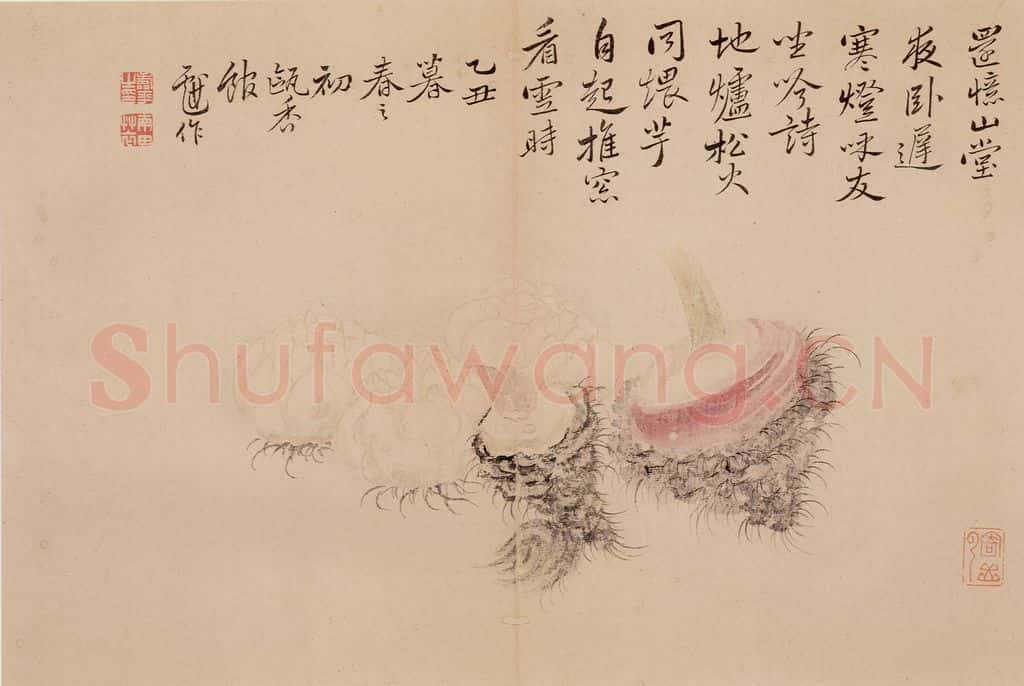 還憶山堂
夜卧遲
寒燈呼友
坐吟詩
地爐松火
同煨芋
自起推窓
看雪時
乙丑
暮
春之
初
甌香
館
作
南田草衣
Shufawang.CN